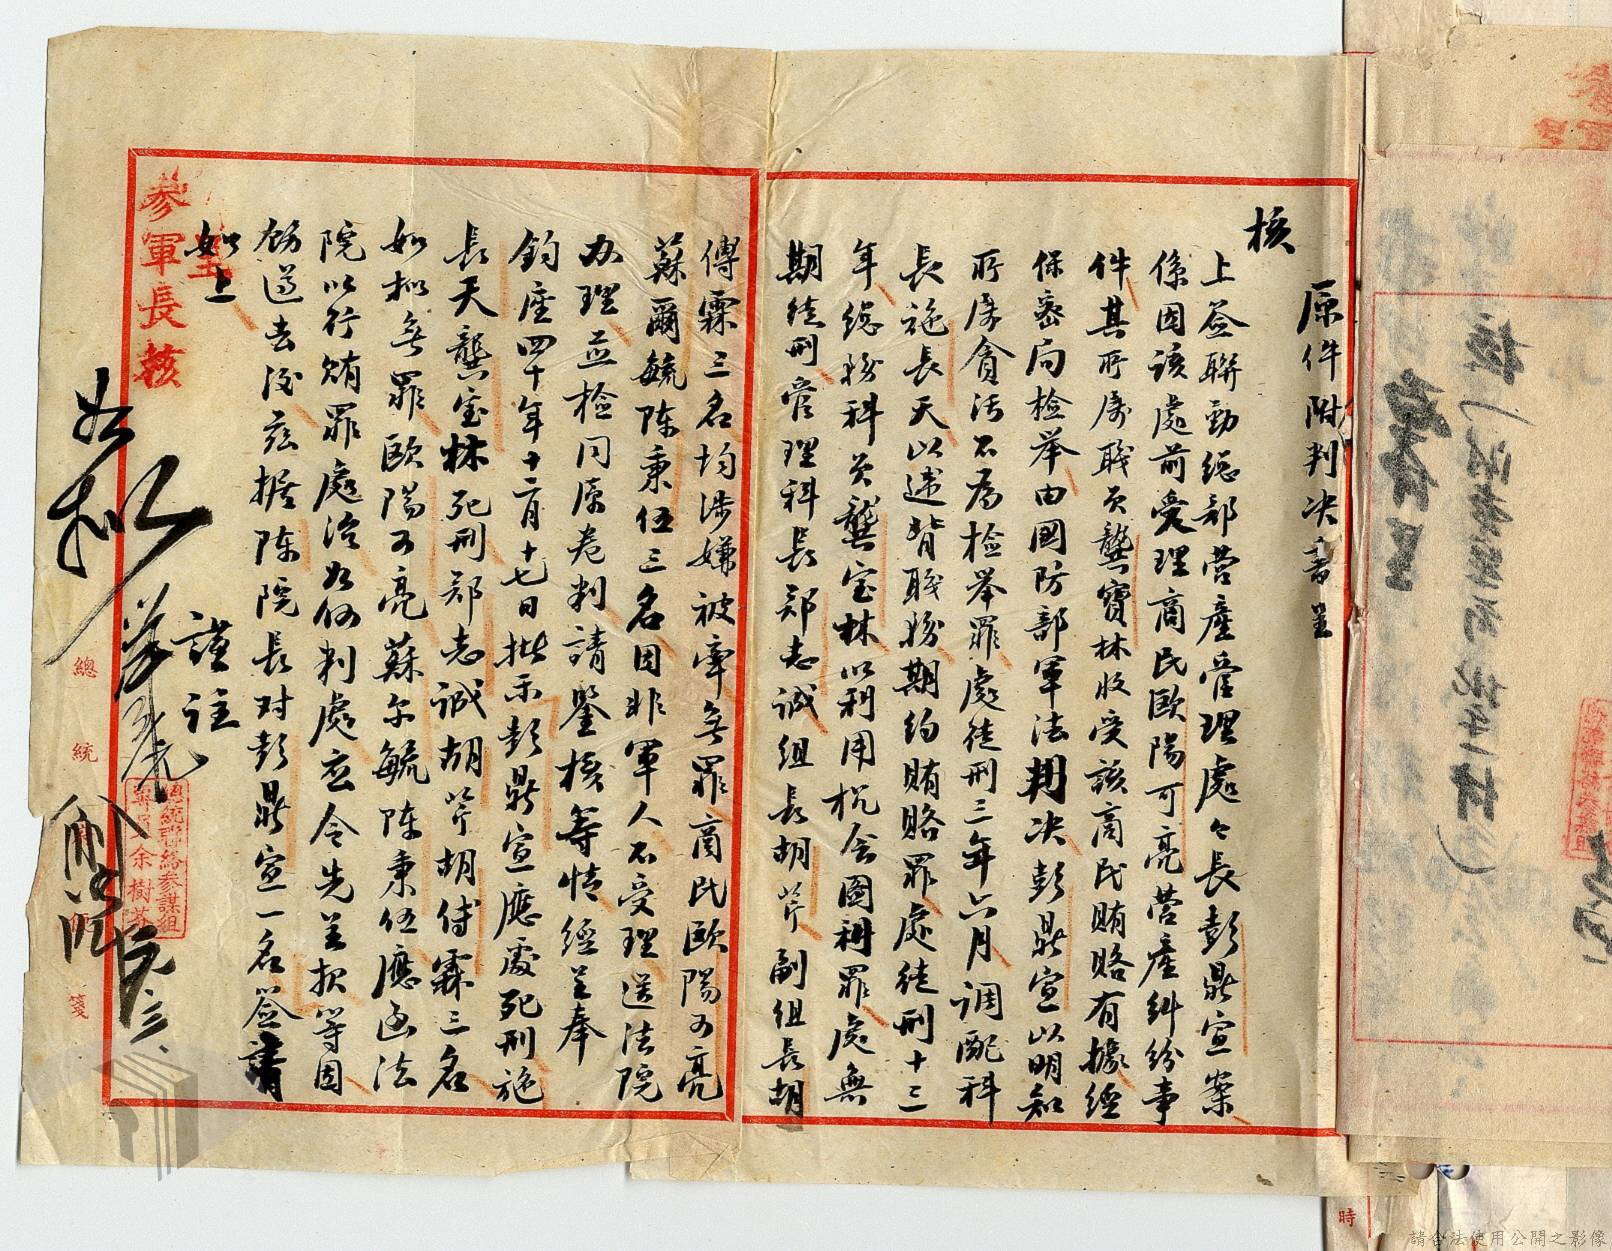 原件附判决書呈
核
上簽聯勤總部营產管理處々長彭鼎宣案
係因該處前受理商民歐陽可亮营產糾紛事
件其所屬職员龔寶林收受該商民賄賂有據經
保密局檢舉由國防部軍法判决彭鼎宣以明知
所屬貪污不為檢舉罪處徒刑三年六月調配科
長施長天以違背職務期約賄賂罪處徒刑十三
年總務科员龔宝林以利用机会圖利罪處無
期徒刑管理科長郑志誠組長胡芹副組長胡
傅霖三名均涉嫌被牽無罪商民歐陽可亮
蘇爾毓陳秉伍三名因非軍人不受理送法院
办理并檢同原卷判請鑒核等情經呈奉
鈞座四十年十二月十七日批示彭鼎宣應處死刑施
長天龔宝林死刑郑志誠胡芹胡傅霖三名
如拟無罪歐陽可亮蘇尔毓陳秉伍應函法
院以行賄罪處治如何判處应令先呈报等因
飭遵去後茲據陳院長对彭鼎宣一名簽請
如上
謹註
參軍長核
如拟
總統聯絡參謀組
余樹芬
總統
箋
時
請合法使用公開之影像